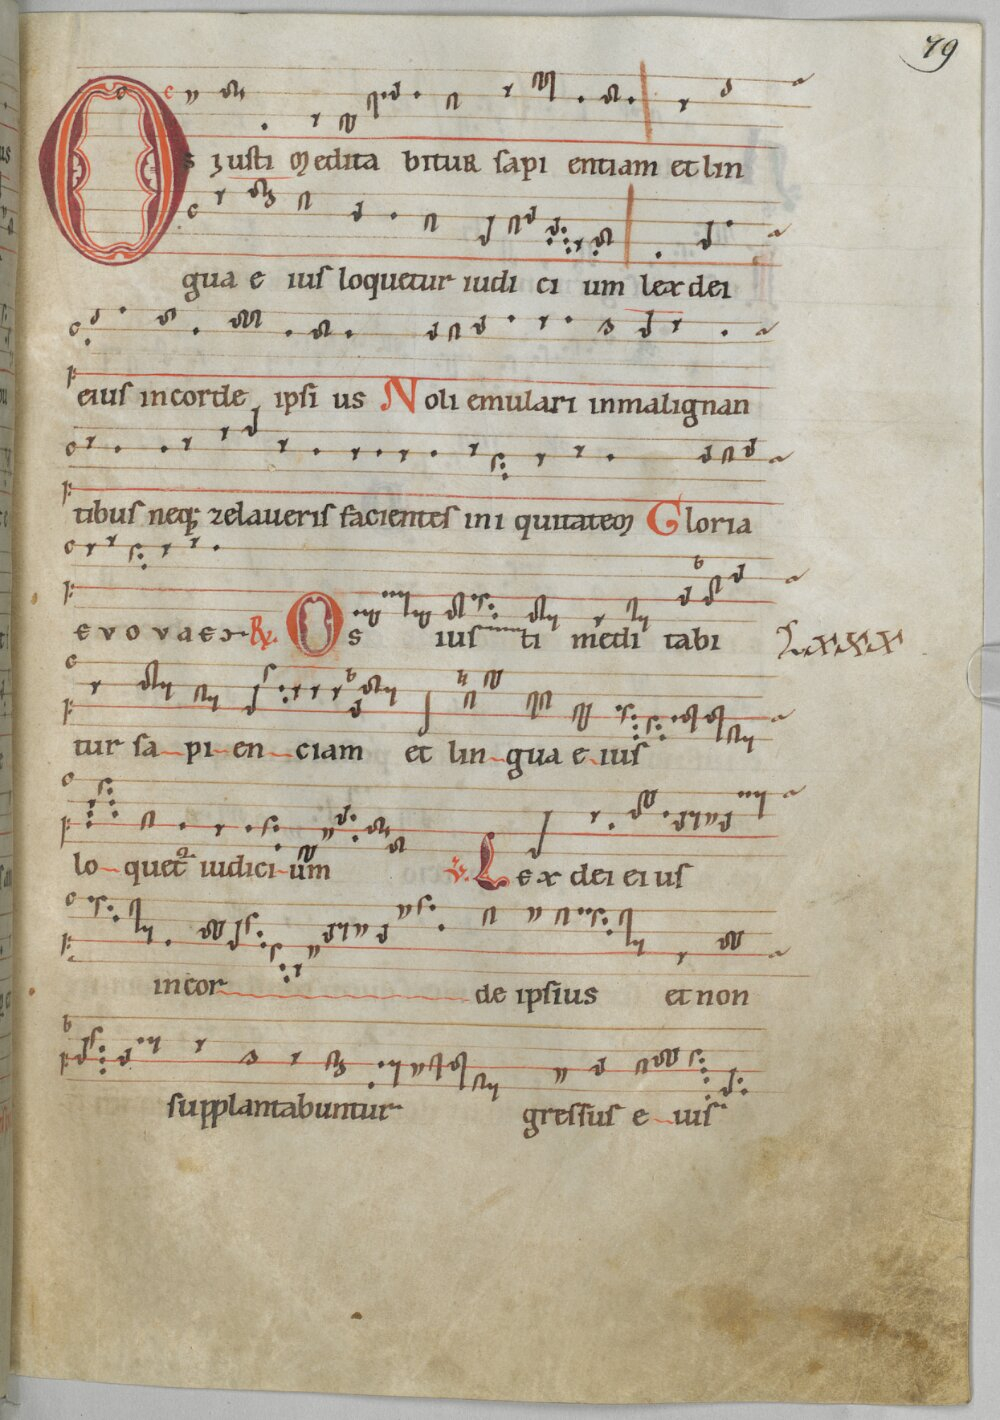 79
Os Iusti Medita bitur sapi entiam et lin
gua e ius loquetur iudi ci um lex dei
eius incorde ipsi us Noli emulari inmalignan
tibus neq; zelaueris facientes ini quitatem Gloria
e v o v a e R. Os ius ti medi tabi Lxxx
tur sa pi en ciam et lin gua e ius
lo quet iudici um V. Lex dei ei us
incor de ipsius et non
supplantabuntur gressus e ius